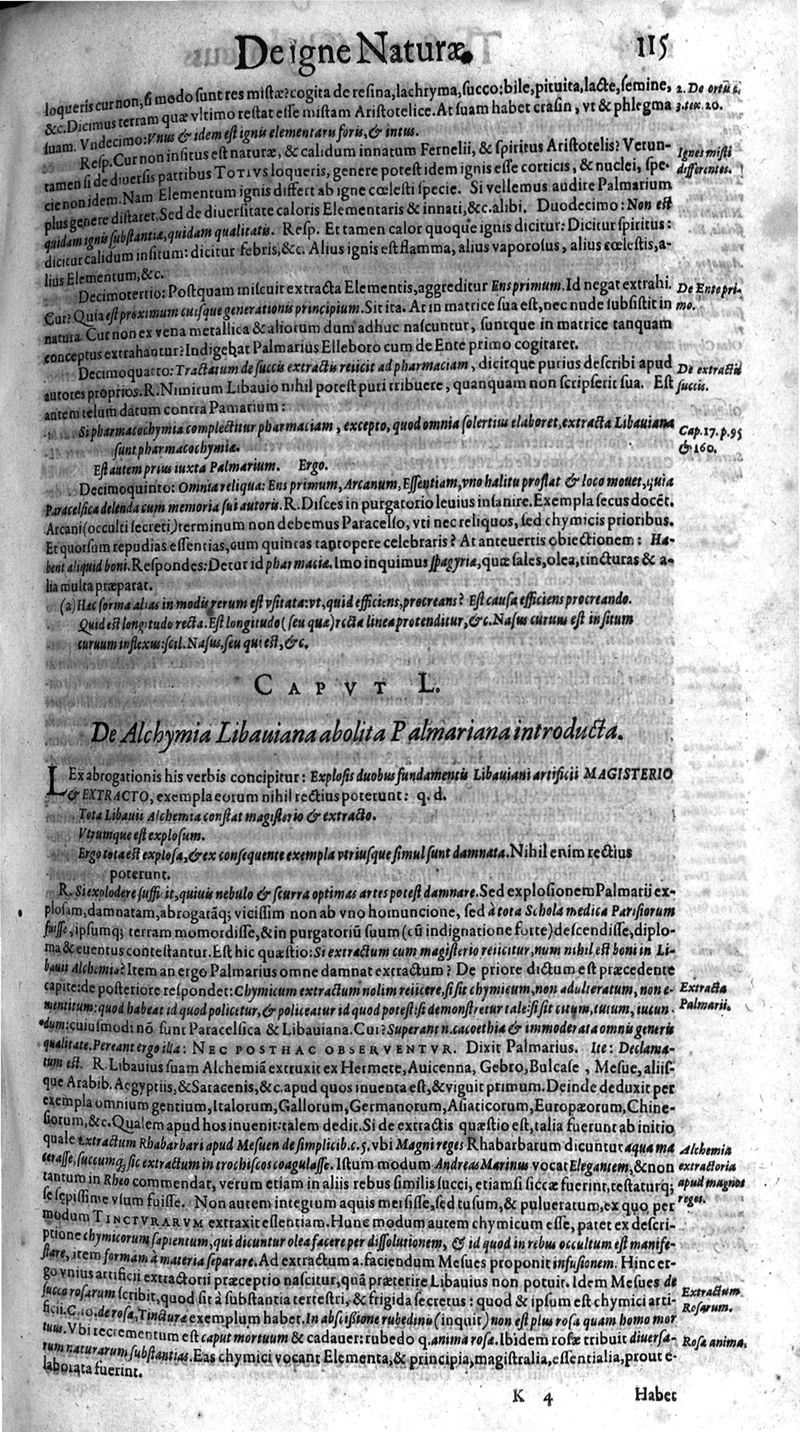 De igne Naturæ. 115
loqueris cur non, si modo sunt res mistæ? cogita de resina, lachryma, succo: bile, pituita, lacte, semine, 2. De ortu &
&c. Dicimus terram quæ vltimo restat esse mistam Aristotelice. At suam habet crasin, vt & phlegma 3. tex. 20.
suam. Vndecimo: Vnus & idem est ignis elementaru foris, & intus.
Resp. Cur non insitus est naturæ, & calidum innatum Fernelii, & spiritus Aristotelis? Verun- Ignes misti
tamen si de diuersis partibus TOTIVS loqueris, genere potest idem ignis esse corticis, & nuclei, spe- differentes.
cie non idem. Nam Elementum ignis differt ab igne cœlesti specie. Si vellemus audire Palmarium
plus genere distaret. Sed de diuersitate caloris Elementaris & innati, &c. alibi. Duodecimo: Non est
quidam ignis substantia, quidam qualitatis. Resp. Et tamen calor quoque ignis dicitur: Dicitur spiritus:
dicitur calidum insitum: dicitur febris, &c. Alius ignis est flamma, alius vaporosus, alius cœlestis, a-
lius Elementum, &c.
Decimotertio: Postquam miscuit extracta Elementis, aggreditur Ens primum. Id negat extrahi. De Ente pri-
Cur? Quia est proximum cuiusque generationis principium. Sit ita. At in matrice sua est, nec nude subsistit in mo.
natura. Cur non ex vena metallica & aliorum dum adhuc nascuntur, suntque in matrice tanquam
conceptus extrahantur? Indigebat Palmarius Elleboro cum de Ente primo cogitaret.
Decimoquarto: Tractatum de succis extractis reiicit ad pharmaciam, dicitque purius describi apud De extractis
autores proprios. R. Nimirum Libauio nihil potest puri tribuere, quanquam non scripserit sua. Est succis.
autem telum datum contra Pamarium:
Si pharmacochymia complectitur pharmaciam, excepto, quod omnia solertius elaboret, extracta Libauiana Cap. 17. p. 95
sunt pharmacochymia. & 160.
Est autem prius iuxta Palmarium. Ergo.
Decimoquinto: Omnia reliqua: Ens primum, Arcanum, Essentiam, vno halitu proflat & loco mouet, quia
Paracelsica delenda cum memoria sui autoris. R. Disces in purgatorio leuius insanire. Exempla secus docēt.
Arcani (occulti secreti) terminum non debemus Paracelso, vti nec reliquos, sed chymicis prioribus.
Et quorsum repudias essentias, cum quintas tantopere celebraris? At anteuertis obiectionem: Ha-
bent aliquid boni. Respondes: Detur id pharmaciæ. Imo inquimus spagyriæ, quæ sales, olea, tincturas & a-
lia multa præparat.
(a) Hac forma alias in modis rerum est vsitata: vt, quid efficiens, procreans? Est causa efficiens procreando.
Quid est longitudo recta. Est longitudo (seu qua) recta linea protenditur, &c. Nasus curuus est insitum
curuum inflexus: scil. Nasus, seu qui est, &c.
CAPVT L.
De Alchymia Libauiana abolita Palmariana introducta.
LEx abrogationis his verbis concipitur: Explosis duobus fundamentis Libauiani artificii MAGISTERIO
& EXTRACTO, exempla eorum nihil rectius poterunt: q. d.
Tota Libauii Alchemia constat magisterio & extracto.
Vtrumque est explosum.
Ergo tota est explosa, & ex consequente exempla vtriusque simul sunt damnata. Nihil enim rectius
poterunt.
R. Si explodere sufficit, quiuis nebulo & scurra optimas artes potest damnare. Sed explosionem Palmarii ex-
plosam, damnatam, abrogatāq; vicissim non ab vno homuncione, sed à tota Schola medica Parisiorum
fuisse, ipsumq; terram momordisse, & in purgatoriū suum (cū indignatione forte) descendisse, diplo-
ma & euentus contestantur. Est hic quæstio: Si extractum cum magisterio reiicitur, num nihil est boni in Li-
bauii Alchemia? Item an ergo Palmarius omne damnat extractum? De priore dictum est præcedente
capite: de posteriore respondet: Chymicum extractum nolim reiicere, si sit chymicum, non adulteratum, non e- Extracta
mentitum: quod habeat id quod policetur, & policeatur id quod potest: si demonstretur tale: si sit citum, tutum, iucun- Palmarii.
dum: cuiusmodi nō sunt Paracelsica & Libauiana. Cur? Superant n. cacoethia & immoderata omnis generis
qualitate. Pereant ergo illa: NEC POSTHAC OBSERVENTVR. Dixit Palmarius. Ite: Declama-
tum est. R. Libauius suam Alchemiā extruxit ex Hermete, Auicenna, Gebro, Bulcase, Mesue, aliis-
que Arabib. Aegyptiis, & Saracenis, &c. apud quos inuenta est, & viguit primum. Deinde deduxit per
exempla omnium gentium, Italorum, Gallorum, Germanorum, Asiaticorum, Europæorum, Chine-
siorum, &c. Qualem apud hos inuenit: talem dedit. Si de extractis quæstio est, talia fuerunt ab initio
quale extractum Rhabarbari apud Mesuen de simplicib. c. 5. vbi Magni reges Rhabarbarum dicuntur aqua ma Alchemia
cerasse, succumq; sic extractum in trochiscos coagulasse. Istum modum Andreas Marinus vocat Elegantem, & non extractoria
tantum in Rheo commendat, verum etiam in aliis rebus similis succi, etiamsi siccæ fuerint, testaturq; apud magnos
se sępissime vsum fuisse. Non autem integrum aquis mersisse, sed tusum, & pulueratum, ex quo per reges.
modum TINCTVRARVM extraxit essentiam. Hunc modum autem chymicum esse, patet ex descri-
ptione chymicorum sapientum, qui dicuntur olea facere per dissolutionem, & id quod in rebus occultum est manife-
stare, item formam à materia separare. Ad extractum a. faciendum Mesues proponit infusionem. Hinc er-
go vnius artificii extractorii præceptio nascitur, quā præterire Libauius non potuit. Idem Mesues de
succo rosarum scribit, quod sit à substantia terrestri, & frigida secretus: quod & ipsum est chymici arti- Extractum
ficii. C. 10. de rosa, Tincturæ exemplum habet. In abscißione rubedinis (inquit) non est plus rosa quam homo mor Rosarum.
tuus. Vbi recrementum est caput mortuum & cadauer: rubedo q. anima rosæ. Ibidem rosæ tribuit diuersa- Rosæ anima.
rum naturarum substantias. Eas chymici vocant Elementa, & principia, magistralia, essentialia, prout e-
laborata fuerint.
K 4 Habet